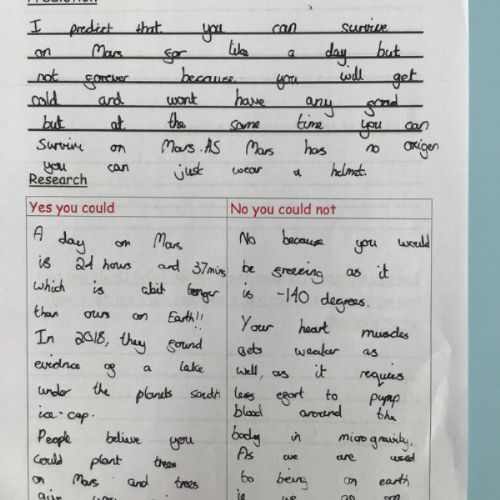 Prediction
I predict that you can survive
on Mars for like a day but
not forever because you will get
cold and wont have any good
but at the same time you can
Survive on Mars. AS Mars has no oxigen
you can just wear a helmet.
Research
Yes you could
A day on Mars
is 24 hours and 37mins
which is abit longer
than ours on Earth!!
In 2018, they found
evidnce of a lake
under the planets south
ice-cap.
People believe you
could plant trees
on Mars and trees
give
No you could not
No because you would
be freezing as it
is -140 degrees.
Your heart muscles
gets weaker as
well, as it requires
less efort to pump
blood around the
body in microgravity.
As we are used
to being on earth
is we go on